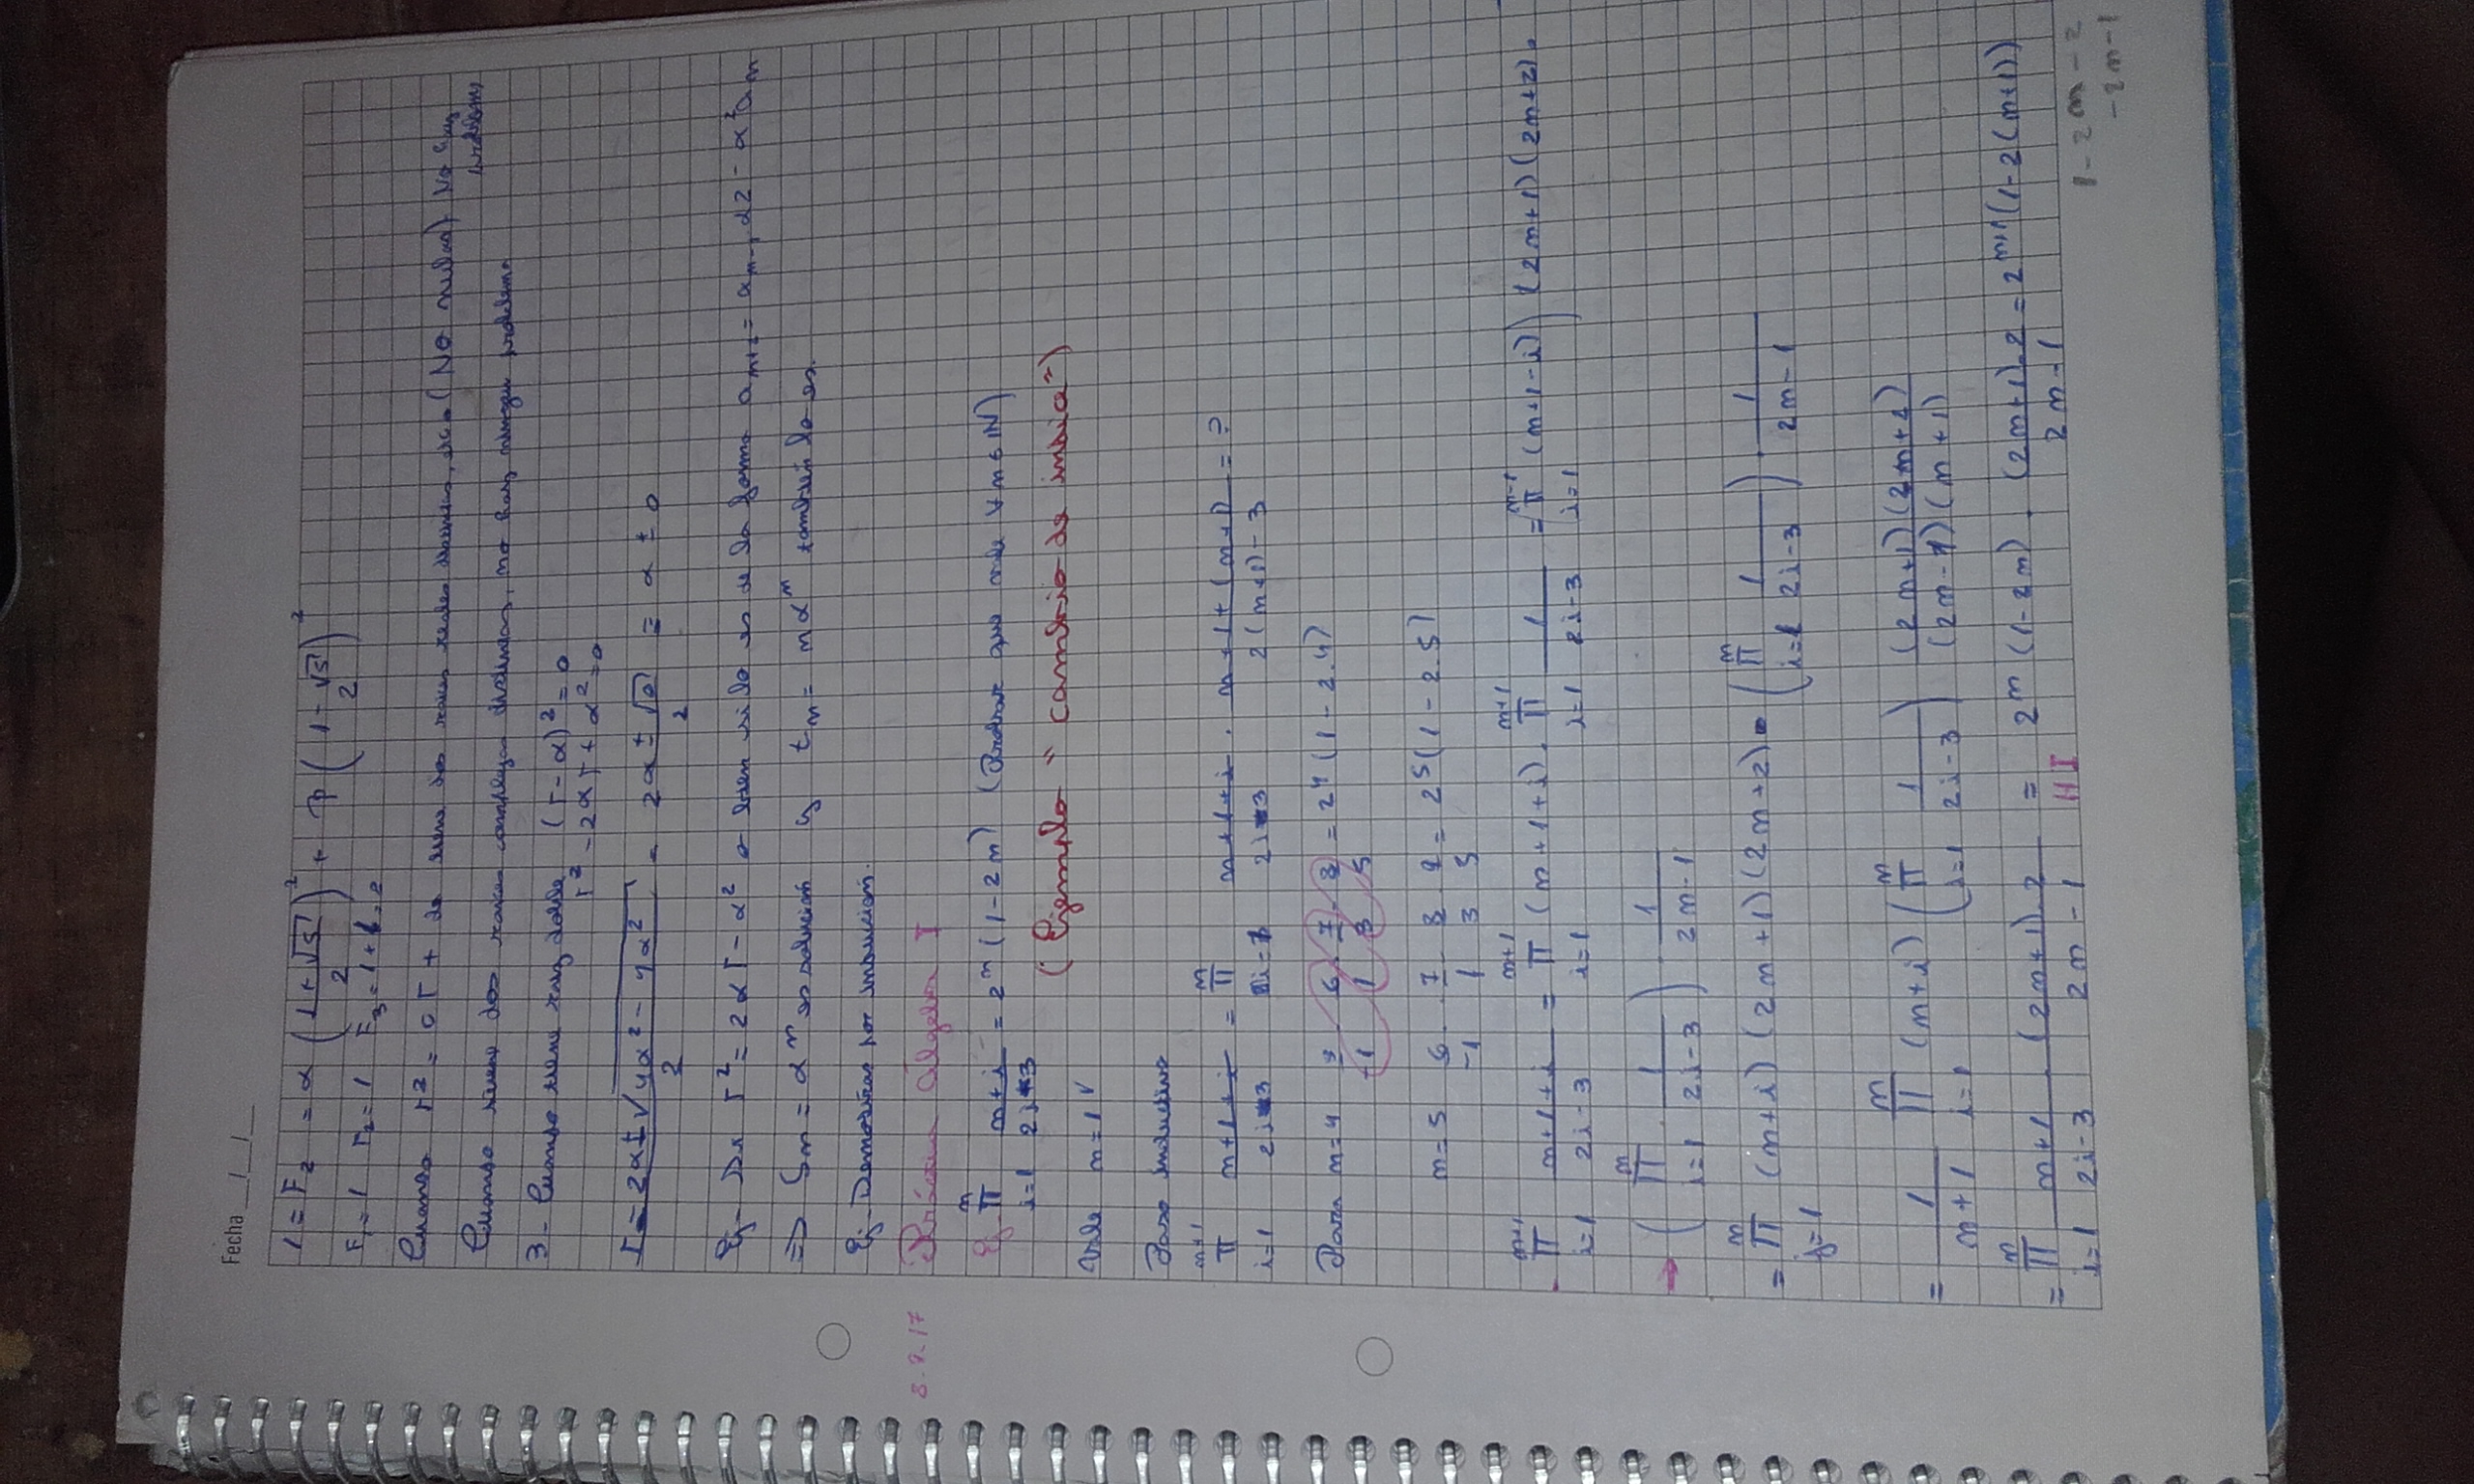 Fecha __/__/__
1 = F₂ = α ((1+√5)/2)² + β ((1-√5)/2)²
F₁=1 F₂=1 F₃=1+1=2
Cuando r² = cr + d tiene dos raíces reales distintas, (No nulas) No hay problema
Cuando tiene dos raíces complejas distintas, no hay ningún problema
3- Cuando tiene raíz doble (r-α)²=0
r² - 2αr + α²=0
r = (2α ± √(4α² - 4α²))/2 = (2α ± √0)/2 = α ± 0
Ej- r² = 2αr - α² o bien si lo es de la forma
⇒ Sₙ = αⁿ es solución y tₙ = nαⁿ también lo es.
Ej- Demostrar por inducción.
8.9.17 Práctica Álgebra I
Ej- ∏_{i=1}^{n} (n+i)/(2i-3) = 2ⁿ(1-2n) (Probar que vale ∀n∈ℕ)
(Ejemplo "cambio de índice")
Vale n=1 ✓
Paso inductivo
∏_{i=1}^{n+1} (n+1+i)/(2i-3) = ∏_{i=1}^{n} (n+1+i)/(2i-3) · (n+1+(n+1))/(2(n+1)-3) = ?
Para n=4 5/-1 · 6/1 · 7/3 · 8/5 = 2⁴(1-2.4)
n=5 6/-1 · 7/1 · 8/3 · 9/5 = 2⁵(1-2.5)
∏_{i=1}^{n+1} (n+1+i)/(2i-3) = ∏_{i=1}^{n+1} (n+1+i) · ∏_{i=1}^{n+1} 1/(2i-3) = ∏_{i=1}^{n-1} (n+1-i)) (2n+1)(2n+2) ·
→ (∏_{i=1}^{n} 1/(2i-3)) · 1/(2n-1)
= ∏_{j=1}^{n} (n+i) (2n+1)(2n+2) · (∏_{i=1}^{n} 1/(2i-3)) · 1/(2n-1)
= 1/(n+1) ∏_{i=1}^{n} (n+i) (∏_{i=1}^{n} 1/(2i-3)) (2n+1)(2n+2)/((2n-1)(n+1))
= ∏_{i=1}^{n} (n+1)/(2i-3) · (2n+1).2/(2n-1) =_{HI} 2ⁿ(1-2n) · (2n+1).2/(2n-1) = 2ⁿ⁺¹(1-2(n+1))
1-2n-2
-2n-1